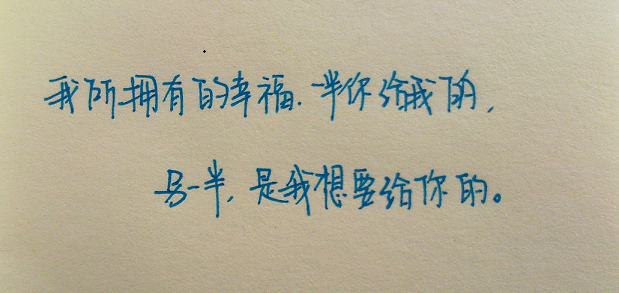 我所拥有的幸福.一半你给我的,
另一半,是我想要给你的。